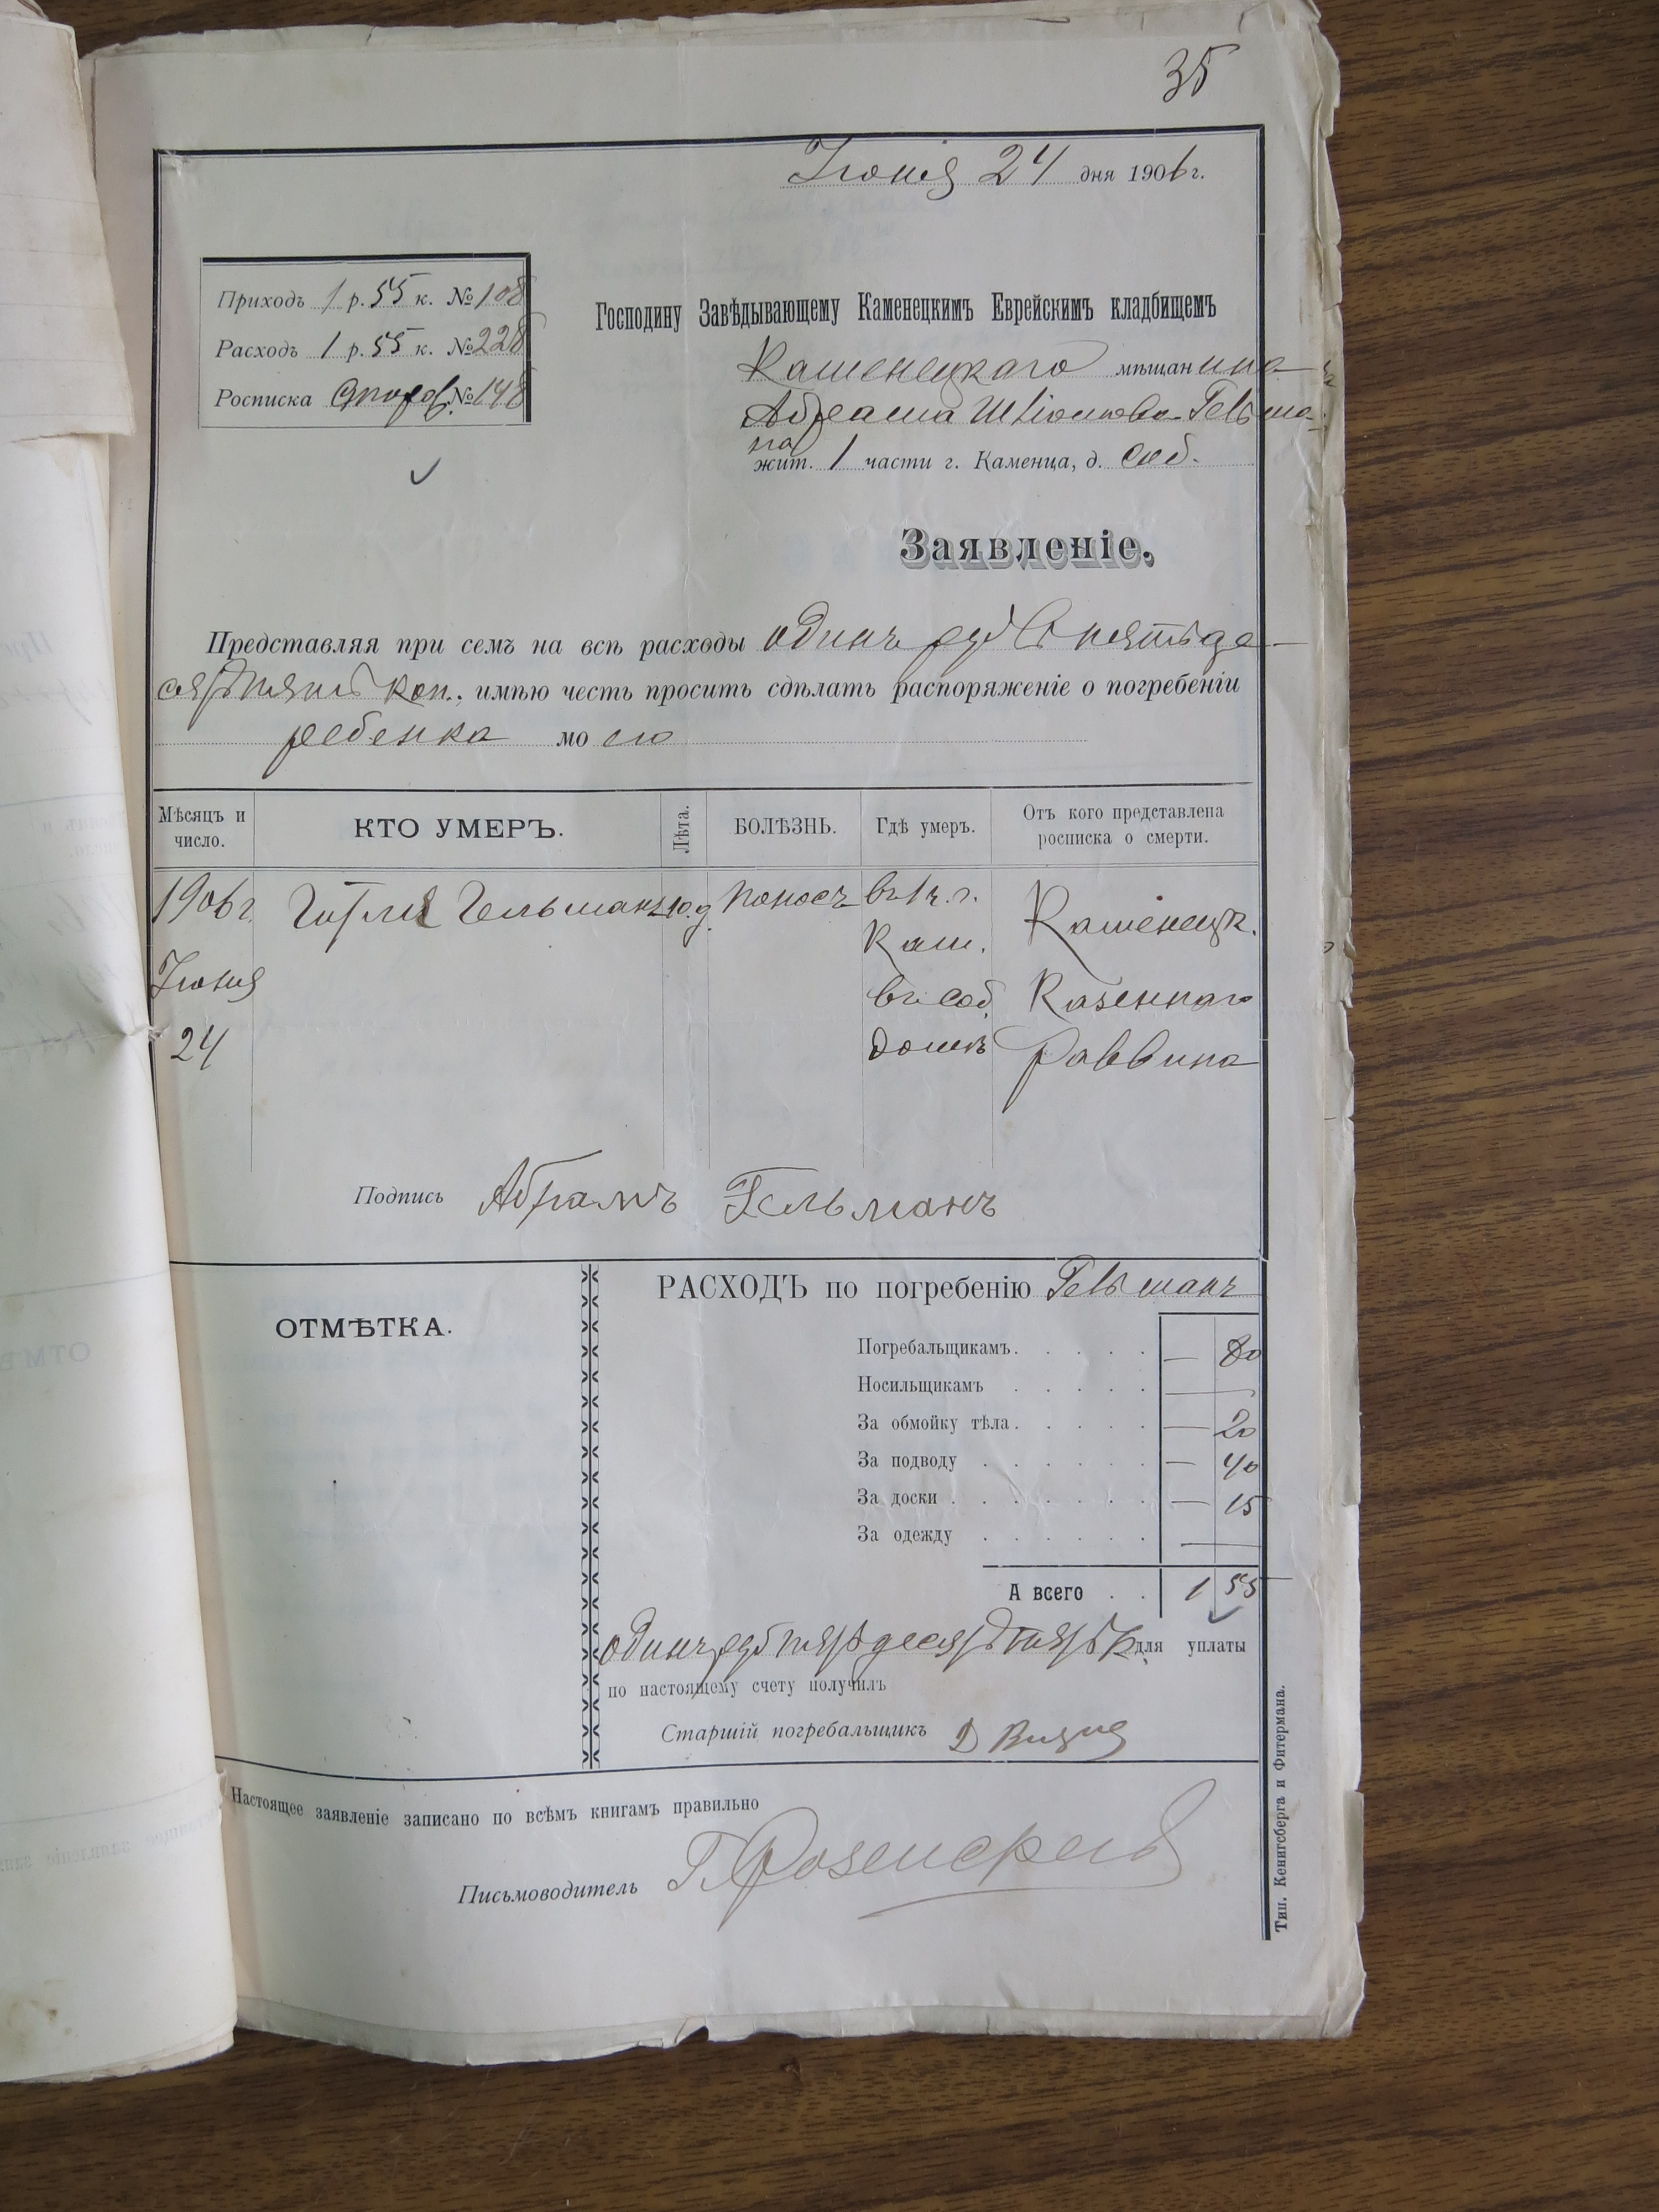 35
Іюнія 24 дня 1906 г.
Приходъ 1 р. 55 к. № 108
Расходъ 1 р. 55 к. № 228
Росписка № 148
Господину Завѣдывающему Каменецкимъ Еврейскимъ кладбищемъ
Каменецкаго мѣщанина
Абрама Гельма-
на
жит. 1 части г. Каменца, д. соб.
Заявленіе.
Представляя при семъ на всѣ расходы одинъ руб пятьде-
сятъ пять коп., имѣю честь просить сдѣлать распоряженіе о погребеніи
ребенка моего
Мѣсяцъ и число.
КТО УМЕРЪ.
Лѣта.
БОЛѢЗНЬ.
Гдѣ умеръ.
Отъ кого представлена росписка о смерти.
1906 г. Гельманъ поносъ въ 1 ч. г. Каменецк.
Кам.
Іюня въ соб. Казеннаго
24 домѣ Раввина
Подпись Абрамъ Гельманъ
ОТМѢТКА.
РАСХОДЪ по погребенію Гельманъ
Погребальщикамъ. — 80
Носильщикамъ —
За обмойку тѣла. — 20
За подводу — 40
За доски — 15
За одежду —
А всего 1 55
одинъ руб пятьдесятъ пять к. для уплаты
по настоящему счету получилъ
Старшій погребальщикъ Д
Настоящее заявленіе записано по всѣмъ книгамъ правильно
Письмоводитель Г. Розенфельд
Тип. Кенигсберга и Фитермана.